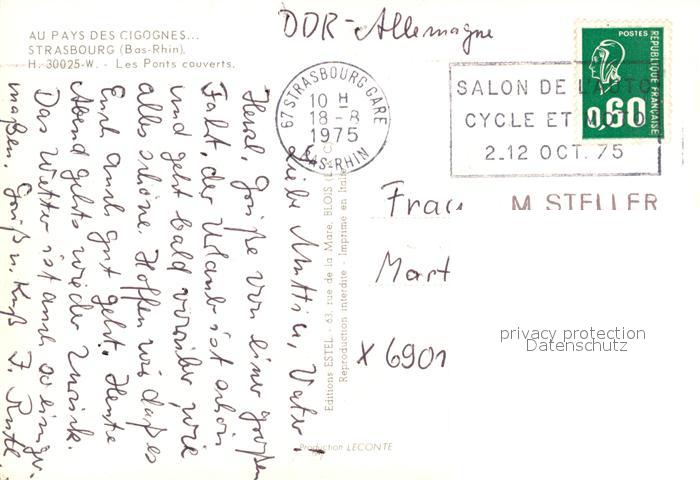 DDR-Allemagne
AU PAYS DES CIGOGNES...
STRASBOURG (Bas-Rhin).
H. 30025-W. - Les Ponts couverts.
67 STRASBOURG GARE
10 H
18-8
1975
BAS-RHIN
SALON DE L'AUTO
CYCLE ET MOTO
2-12 OCT. 75
POSTES
REPUBLIQUE FRANÇAISE
0,60
Liebe Mutti, Vater,
Grüße von einer großen
Fahrt, der Urlaub ist schön
und geht bald vorüber, wie
alles schöne. Hoffen wir daß es
Euch auch gut geht. Heute
Abend gehts wieder zurück.
Das Wetter ist auch so einiger
maßen. Gruß u. Kuß
Editions ESTEL - 63, rue de la Mare, BLOIS
Reproduction interdite - Imprimé en Italie
Production LECONTE
Frau M STELLER
Mart
X 6901
privacy protection
Datenschutz